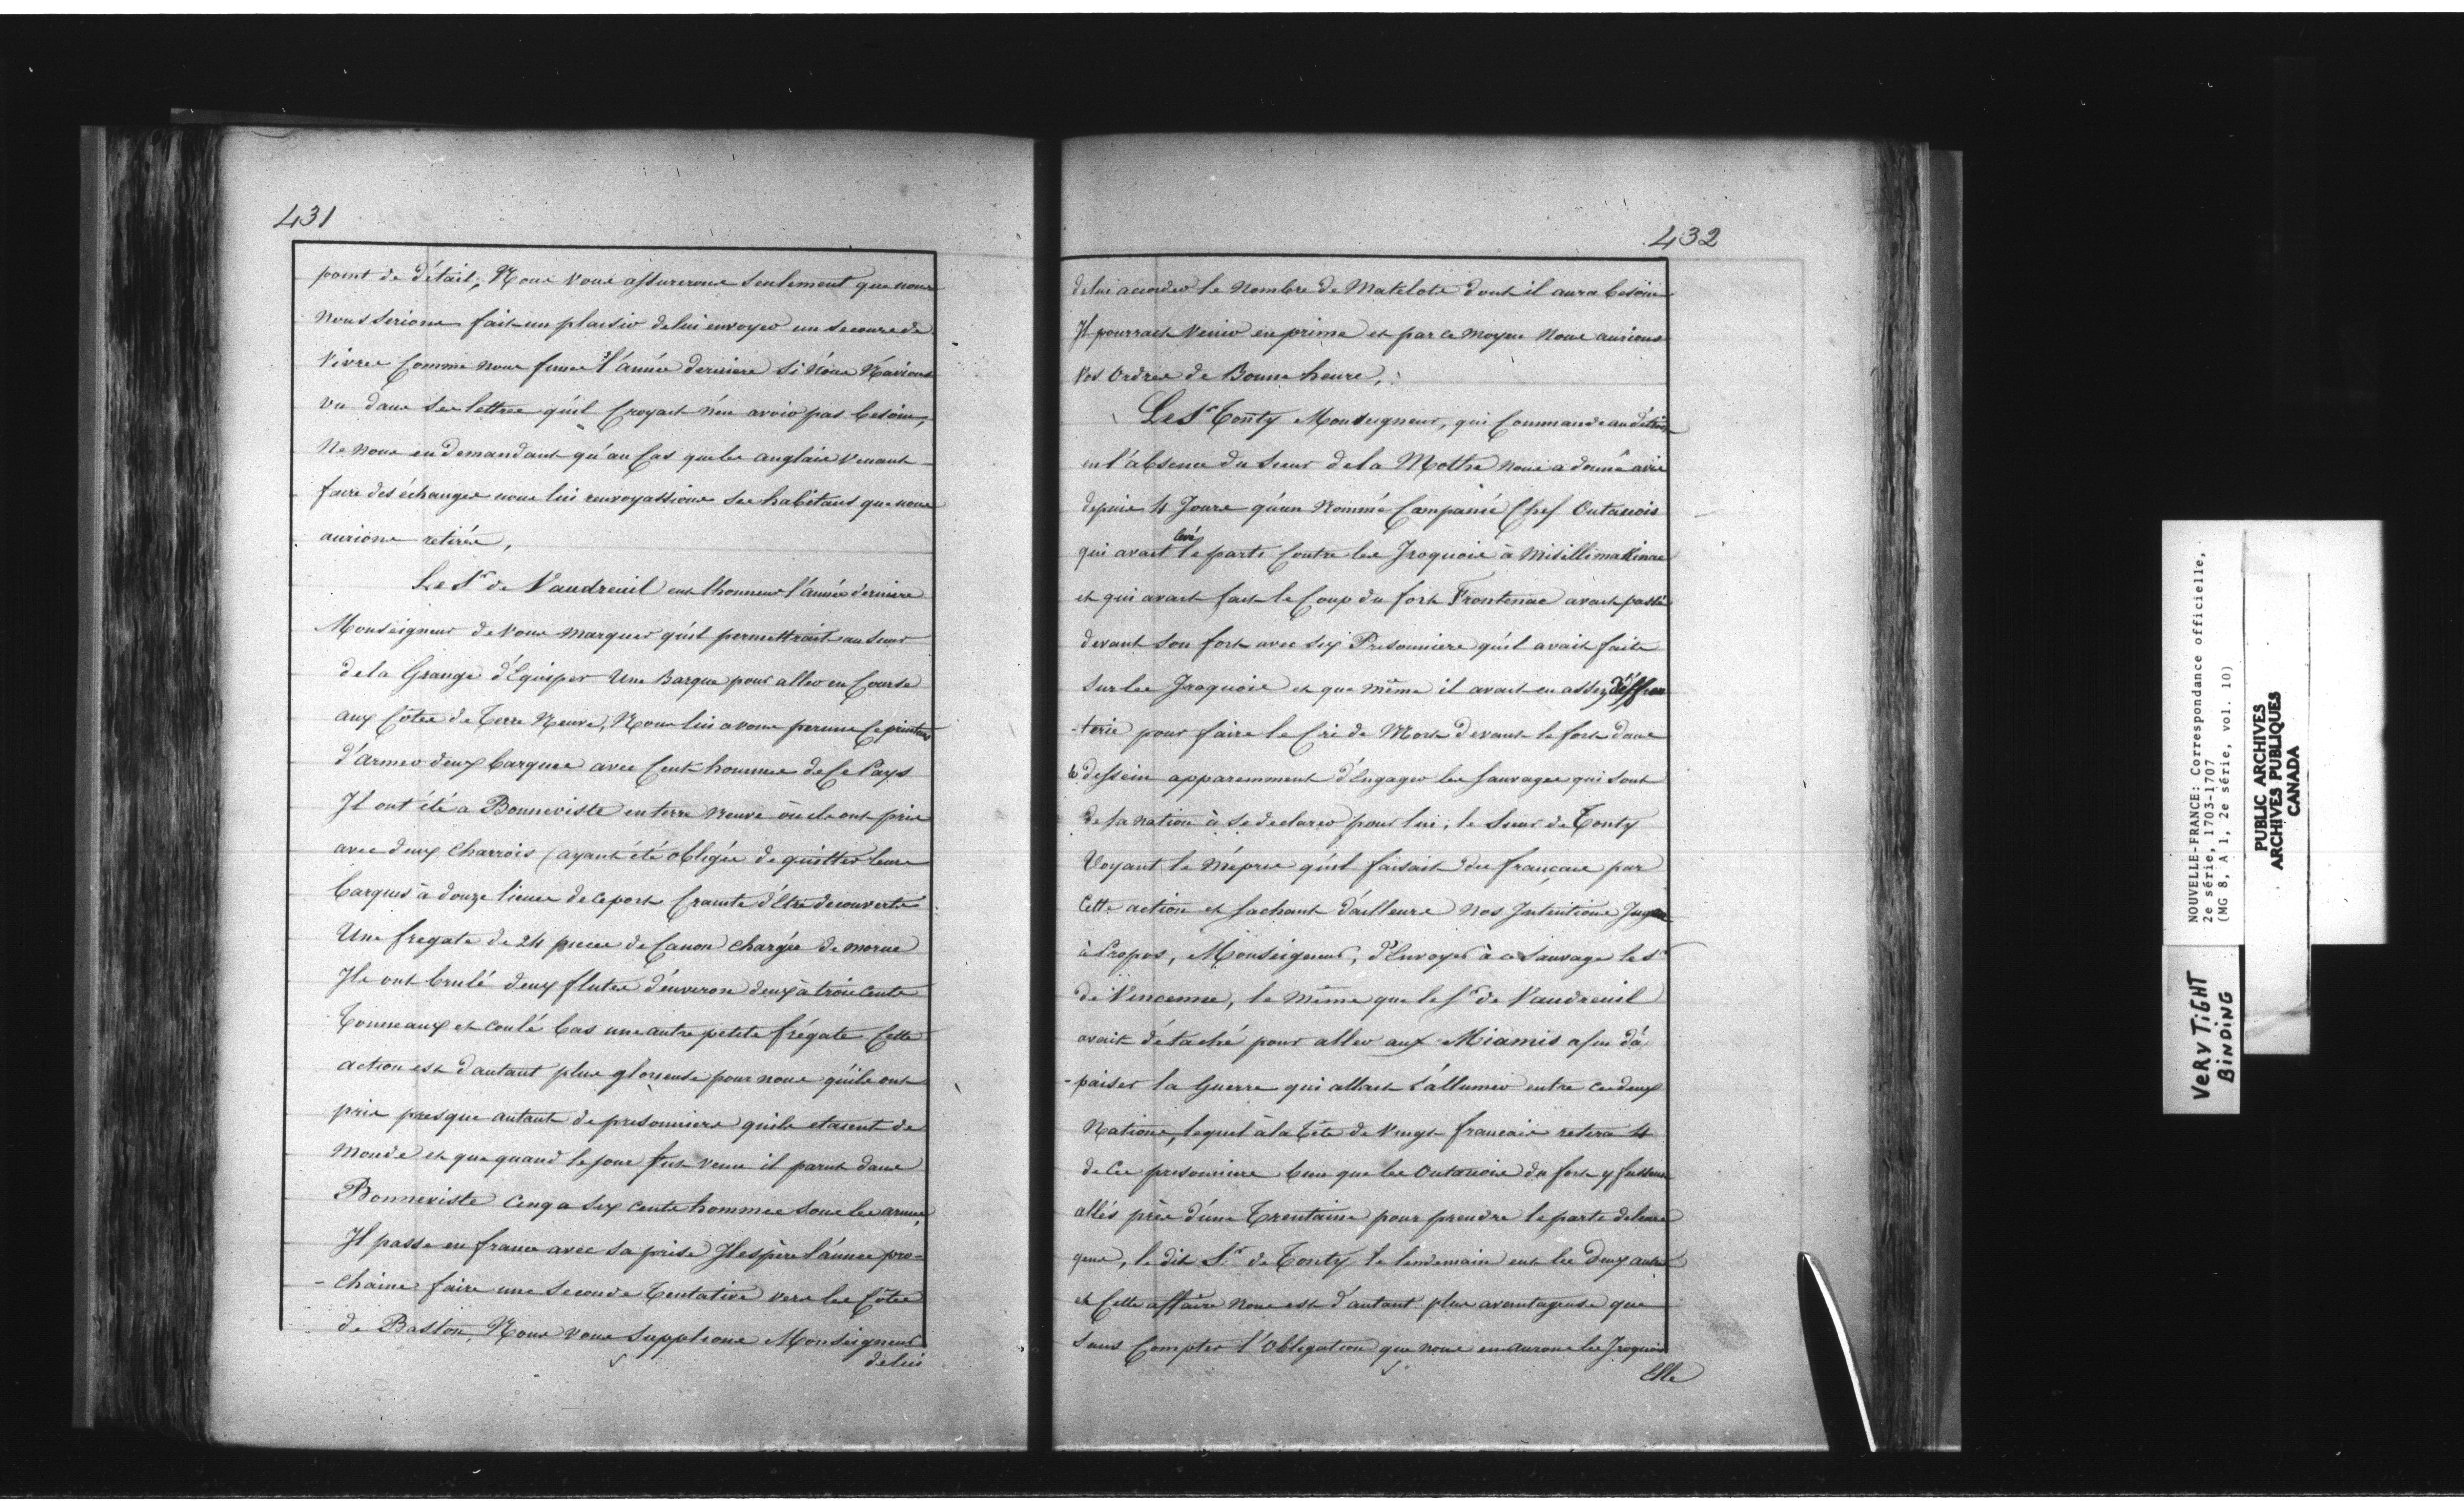 431
point de détail, Nous vous assurerons seulement que nous
nous serions fait un plaisir de lui envoyer un secours de
vivres comme nous fimes l'année derniere si nous n'avions
vu dans ses lettres qu'il croyait n'en avoir pas besoin,
Ne nous en demandant qu'au cas que les anglais venant
faire des échanges nous lui renvoyassions ses habitants que nous
aurions retirés,
Le Sr de Vaudreuil eut lhonneur l'année derniere
Monseigneur de vous marquer qu'il permettrait au Sieur
de la Grange d'Equiper Une Barque pour aller en Course
aux côtes de Terre Neuve, Nous lui avons permis ce printems
d'armer deux barques avec cent hommes de ce Pays
Il ont été a Bonneviste en terre neuve où ils ont pris
avec deux Charrois (ayant été obligés de quitter leurs
barques à douze lieues de ce port crainte d'être decouverts
Une fregate de 24 pieces de Canon chargée de morue
Ils ont brulé deux flutes d'environ deux à trois cents
Tonneaux et coulé bas une autre petite frégate Cette
action est d'autant plus glorieuse pour nous qu'ils ont
pris presque autant de prisonniers qu'ils etaient de
Monde et que quand le jour fut venu il parut dans
Bonneviste cinq a six cents hommes sous les armes,
Il passe en france avec sa prise Il espère l'année pro-
-chaine faire une seconde Tentative vers les Côtes
de Baston, Nous vous supplions Monseigneur
de lui
432
de lui accorder le nombre de Matelots dont il aura besoin
Il pourrait venir en prime et par ce moyen Nous aurions
vos Ordres de Bonne heure,
Le Sr Tonty Monseigneur, qui Commande au détroit
en l'absence du Sieur de la Mothe nous a donné avis
depuis 4 Jours qu'un Nommé Companié Chef Outaouois
levé
qui avait le parti contre les Iroquois à Misillimakinac
et qui avait fait le Coup du fort Frontenac avait passé
devant son fort avec six Prisonniers qu'il avait faits
sur les Iroquois et que même il avait eu assez d'effron
-terie pour faire le Cri de Mort devant le fort dans
le dessein apparemment d'Engager les sauvages qui sont
de sa nation à se declarer pour lui, le Sieur de Tonty
Voyant le mépris qu'il faisait des français par
cette action et sachant d'ailleurs nos Intentions Jugea
à Propos, Monseigneur, d'Envoyer à ce sauvage le Sr
de Vincenne, le même que le Sr de Vaudreuil
avait détaché pour aller aux Miamis afin d'a
-paiser la Guerre qui allait s'allumer entre ces deux
Nations, lequel à la Tête de Vingt francais retira 4
de ces prisonniers bien que les Outaouois du fort y fussent
allés près d'une Trentaine pour prendre le parti de leurs
gens, le dit Sr de Tonty le lendemain eut les deux autres
et Cette affaire nous est d'autant plus avantageuse que
sans Compter l'Obligation que nous en aurons les Iroquois
Elle
NOUVELLE-FRANCE: Correspondance officielle,
2e série, 1703-1707
(MG 8, A 1, 2e série, vol. 10)
PUBLIC ARCHIVES
ARCHIVES PUBLIQUES
CANADA
VERY TIGHT
BINDING